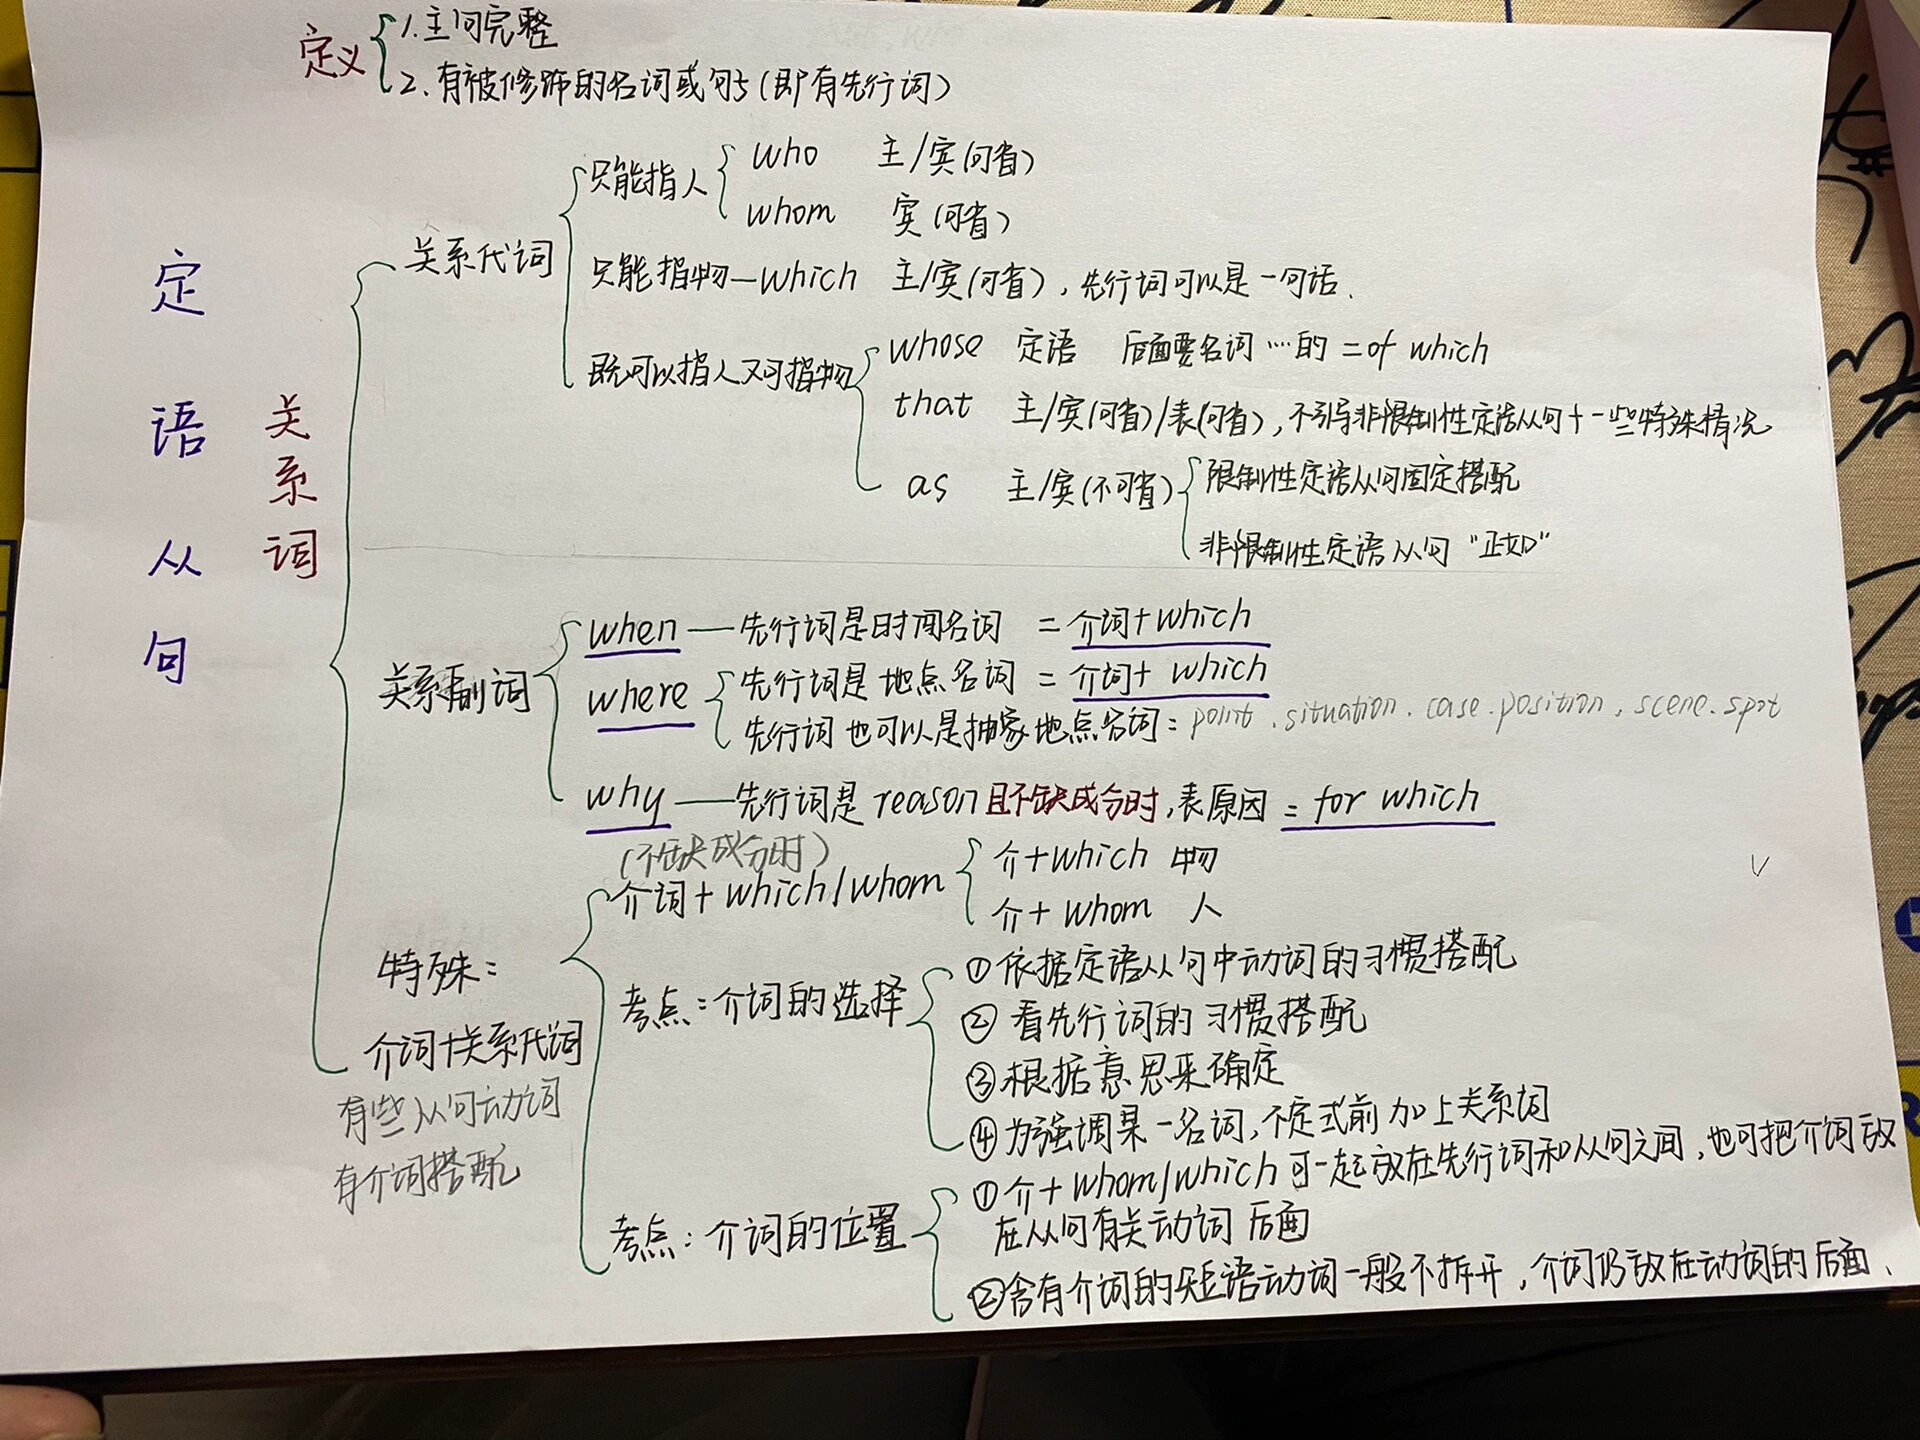 定义
1.主句完整
2.有被修饰的名词或句子(即有先行词)
定语从句
关系词
关系代词
只能指人
who 主/宾(可省)
whom 宾(可省)
只能指物—which 主/宾(可省),先行词可以是一句话.
既可以指人又可指物
whose 定语 后面要名词 ….的 = of which
that 主/宾(可省)/表(可省),不引导非限制性定语从句+一些特殊情况
as 主/宾(不可省)
限制性定语从句固定搭配
非限制性定语从句 "正如"
关系副词
when — 先行词是时间名词 = 介词+which
where
先行词是地点名词 = 介词+ which
先行词也可以是抽象地点名词: point.situation.case.position,scene.spot
why — 先行词是 reason且不缺成分时,表原因 = for which
特殊:
介词+关系代词
有些从句动词
有介词搭配
(不缺成分时)
介词+ which/whom
介+which 物
介+ whom 人
考点:介词的选择
①依据定语从句中动词的习惯搭配
②看先行词的习惯搭配
③根据意思来确定
④为强调某一名词,不定式前加上关系词
考点:介词的位置
①介+ whom/which可一起放在先行词和从句之间,也可把介词放
在从句有关动词后面
②含有介词的短语动词一般不拆开,介词仍放在动词的后面、